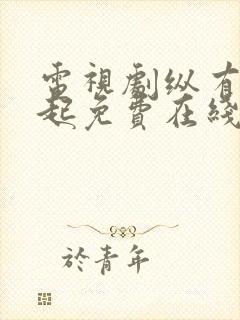 電視劇纵有
起免費在綫
於青年